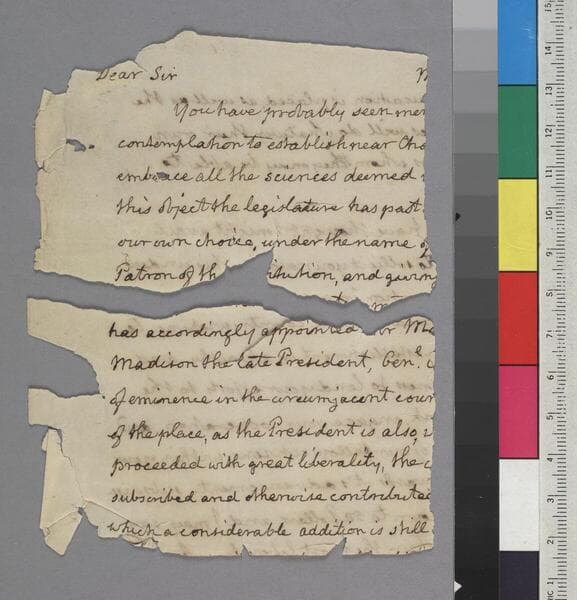 Dear Sir M
You have probably seen men
contemplation to establish near Cha
embrace all the sciences deemed
this object the legislature has past
our own choice, under the name o
Patron of th itution, and giving
has accordingly appointed or M
Madison the late President, Genl.
of eminence in the circumjacent coun
of the place, as the President is also,
proceeded with great liberality, the
subscribed and otherwise contributed
which a considerable addition is still